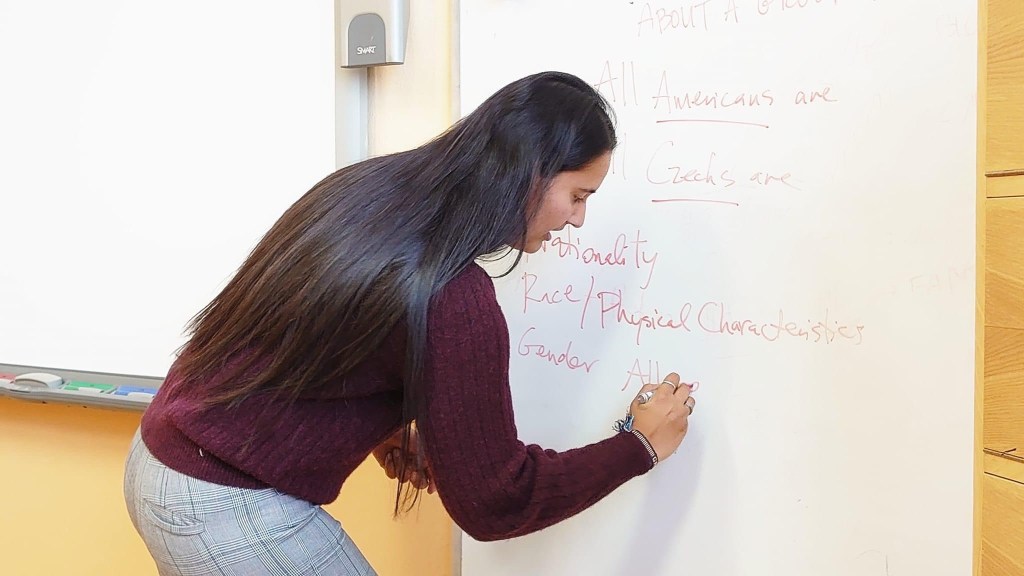 SMART
ABOUT A
All Americans are
Czechs are
Nationality
Race/Physical Characteristics
Gender All